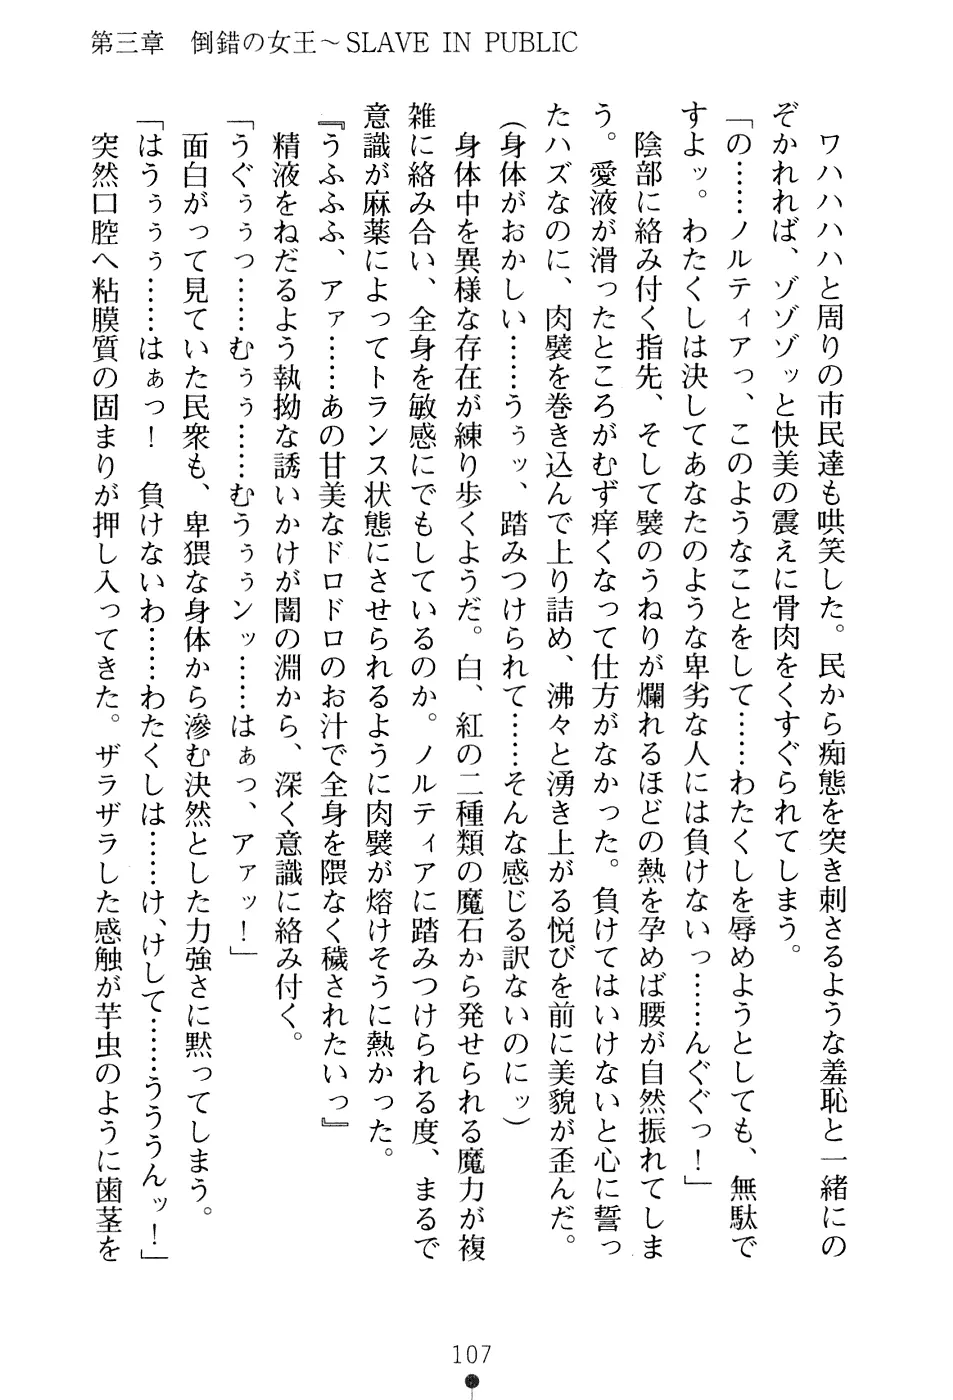 第三章　倒錯の女王～SLAVE IN PUBLIC
　ワハハハハと周りの市民達も哄笑した。民から痴態を突き刺さるような羞恥と一緒にの
ぞかれれば、ゾゾゾッと快美の震えに骨肉をくすぐられてしまう。
「の……ノルティアっ、このようなことをして……わたくしを辱めようとしても、無駄で
すよッ。わたくしは決してあなたのような卑劣な人には負けないっ……んぐぐっ！」
　陰部に絡み付く指先、そして襞のうねりが爛れるほどの熱を孕めば腰が自然振れてしま
う。愛液が滑ったところがむず痒くなって仕方がなかった。負けてはいけないと心に誓っ
たハズなのに、肉襞を巻き込んで上り詰め、沸々と湧き上がる悦びを前に美貌が歪んだ。
（身体がおかしい……うぅッ、踏みつけられて……そんな感じる訳ないのにッ）
　身体中を異様な存在が練り歩くようだ。白、紅の二種類の魔石から発せられる魔力が複
雑に絡み合い、全身を敏感にでもしているのか。ノルティアに踏みつけられる度、まるで
意識が麻薬によってトランス状態にさせられるように肉襞が熔けそうに熱かった。
『うふふふ、アァ……あの甘美なドロドロのお汁で全身を隈なく穢されたいっ』
　精液をねだるよう執拗な誘いかけが闇の淵から、深く意識に絡み付く。
「うぐぅぅっ……むぅぅ……むうぅぅンッ……はぁっ、アァッ！」
　面白がって見ていた民衆も、卑猥な身体から滲む決然とした力強さに黙ってしまう。
「はうぅぅぅ……はぁっ！　負けないわ……わたくしは……け、けして……うううんッ！」
　突然口腔へ粘膜質の固まりが押し入ってきた。ザラザラした感触が芋虫のように歯茎を
107